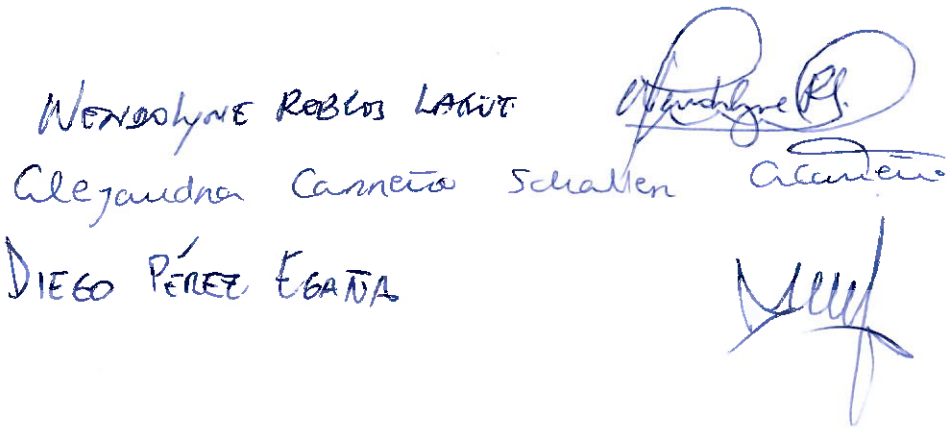 WENDOLYNE ROBLES LAGÜT Wendolyne RL.
Alejandra Carreño Schaller ACarreño
DIEGO PÉREZ EGAÑA